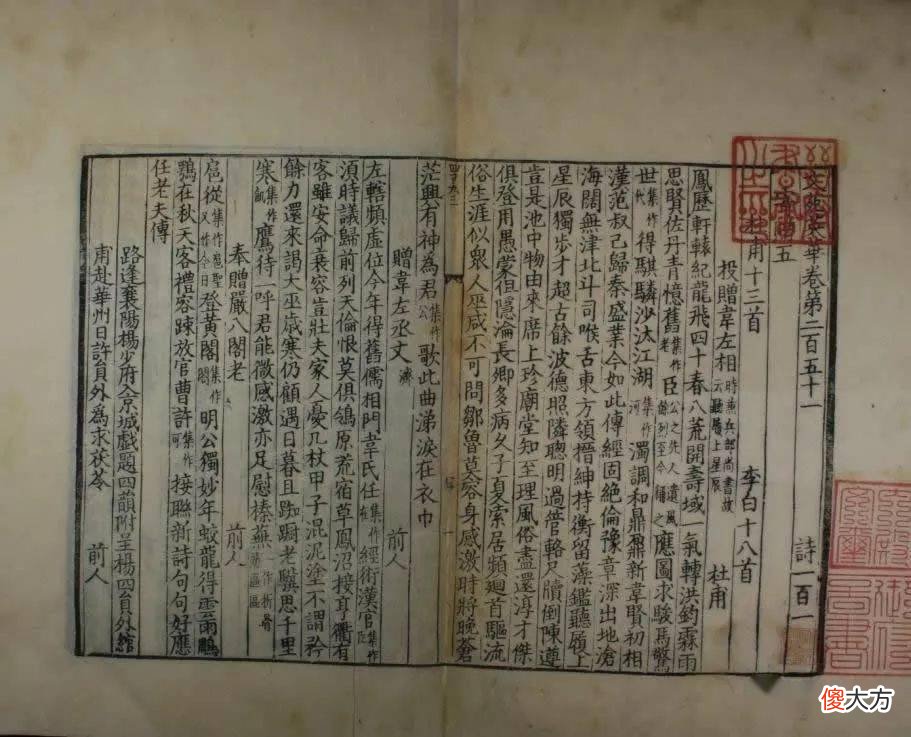 文苑英華卷第二百五十一 詩一百一
杜甫十三首 李白十八首
投贈韋左相 時兼兵部尚書故云聽履上星辰 杜甫
鳳歷軒轅紀龍飛四十春八荒開壽域一氣轉洪鈞霖雨
思賢佐丹青憶舊 集作老 臣 公之先人遺風餘烈至今稱之 應圖求駿馬驚
世 集作代 得騏驎沙汰江湖 集作河 濁調和鼎鼐新韋賢初相
漢范叔已歸秦盛業今如此傳經固絶倫豫章深出地滄
海闊無津北斗司喉舌東方領搢紳持衡留藻鑑聽履上
星辰獨步才超古餘波德照隣聰明過管輅尺牘倒陳遵
豈是池中物由來席上珍廟堂知至理風俗盡還淳才傑
俱登用愚蒙但隱淪長卿多病久子夏索居頻廻首驅流
俗生涯似衆人巫咸不可問鄒魯莫容身感激時將晚蒼
茫興有神為君 集作公 歌此曲涕淚在衣巾
贈韋左丞丈 濟 前人
左轄頻虛位今年得舊儒相門韋氏任 集作在 經術漢官 集作臣 
須時議歸前列天倫恨莫俱鴒原荒宿草鳳沼接亨衢有
客雖安命衰容豈壯夫家人憂几杖甲子混泥塗不謂矜
餘力還來謁大巫歲寒仍顧遇日暮且踟蹰老驥思千里
寒 集作飢 鷹待一呼君能微感激亦足慰榛蕪
奉贈嚴八閣老 前人
扈從 集作扈聖又作今日 登黃閣 集作閤 明公獨妙年蛟龍得雲雨鵰
鶚在秋天客禮容踈放官曹許 集作可 接聯新詩句句好應
任老夫傳
路逢襄陽楊少府入京城戲題四韻附呈楊四員外綰
甫赴華州日許員外為求茯苓 前人
傻大方